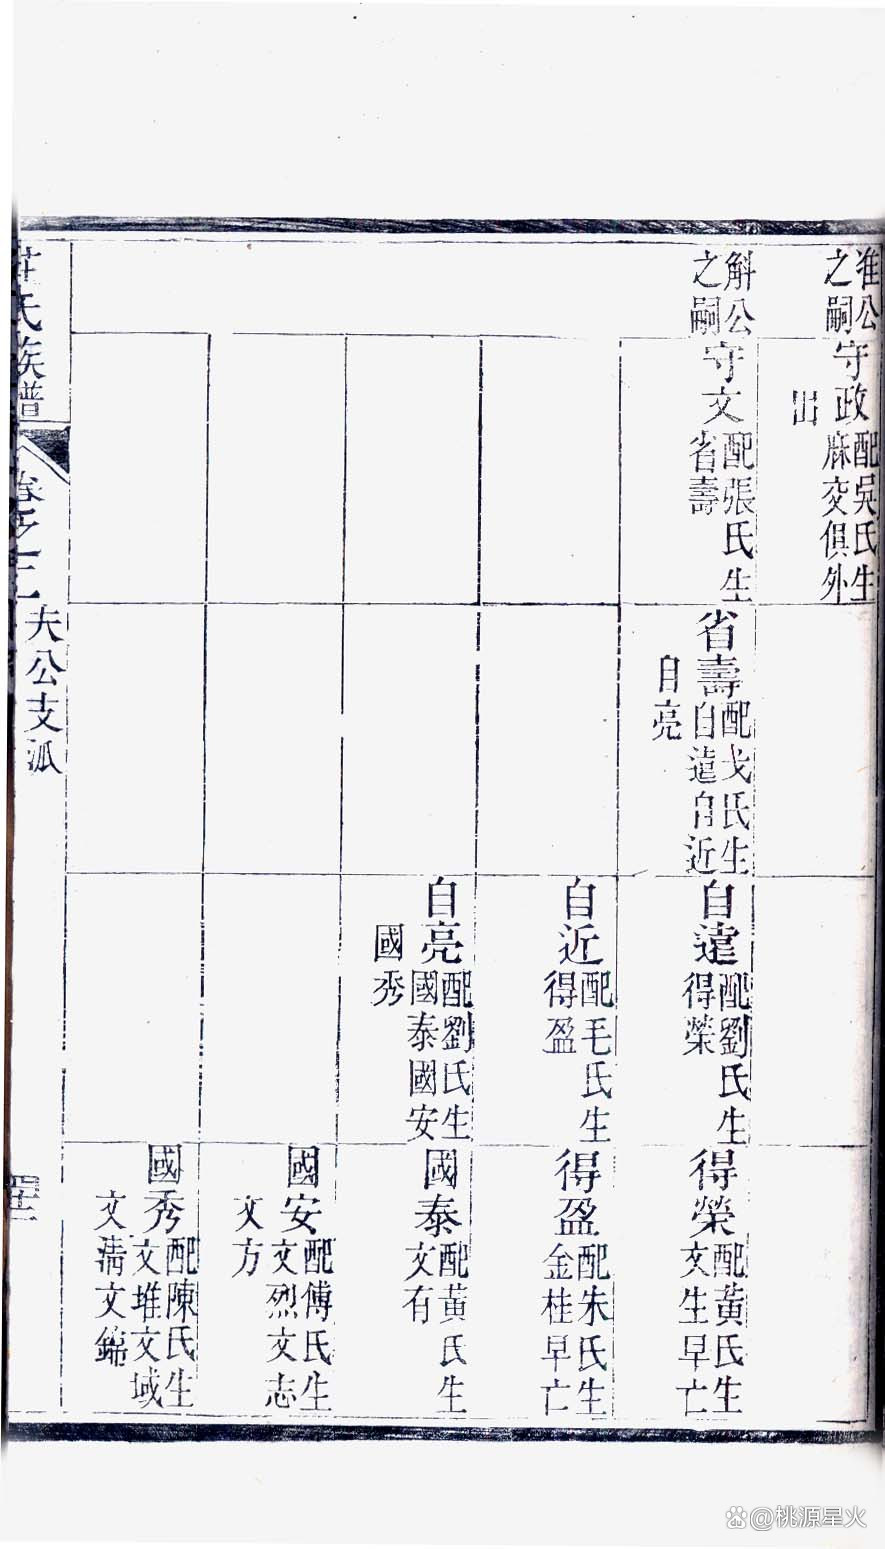 淮公
之嗣
守政
配吳氏生
麻交俱外
出
斛公
之嗣
守文
配張氏生
省壽
省壽
配戈氏生
自遠自近
自亮
自遠
配劉氏生
得榮
得榮
配黃氏生
文生早亡
自近
配毛氏生
得盈
得盈
配朱氏生
金桂早亡
自亮
配劉氏生
國泰國安
國秀
國泰
配黃氏生
文有
國安
配傅氏生
文烈文志
文方
國秀
配陳氏生
文堆文域
文清文錦
氏族譜
卷之二
夫公支派
@桃源星火